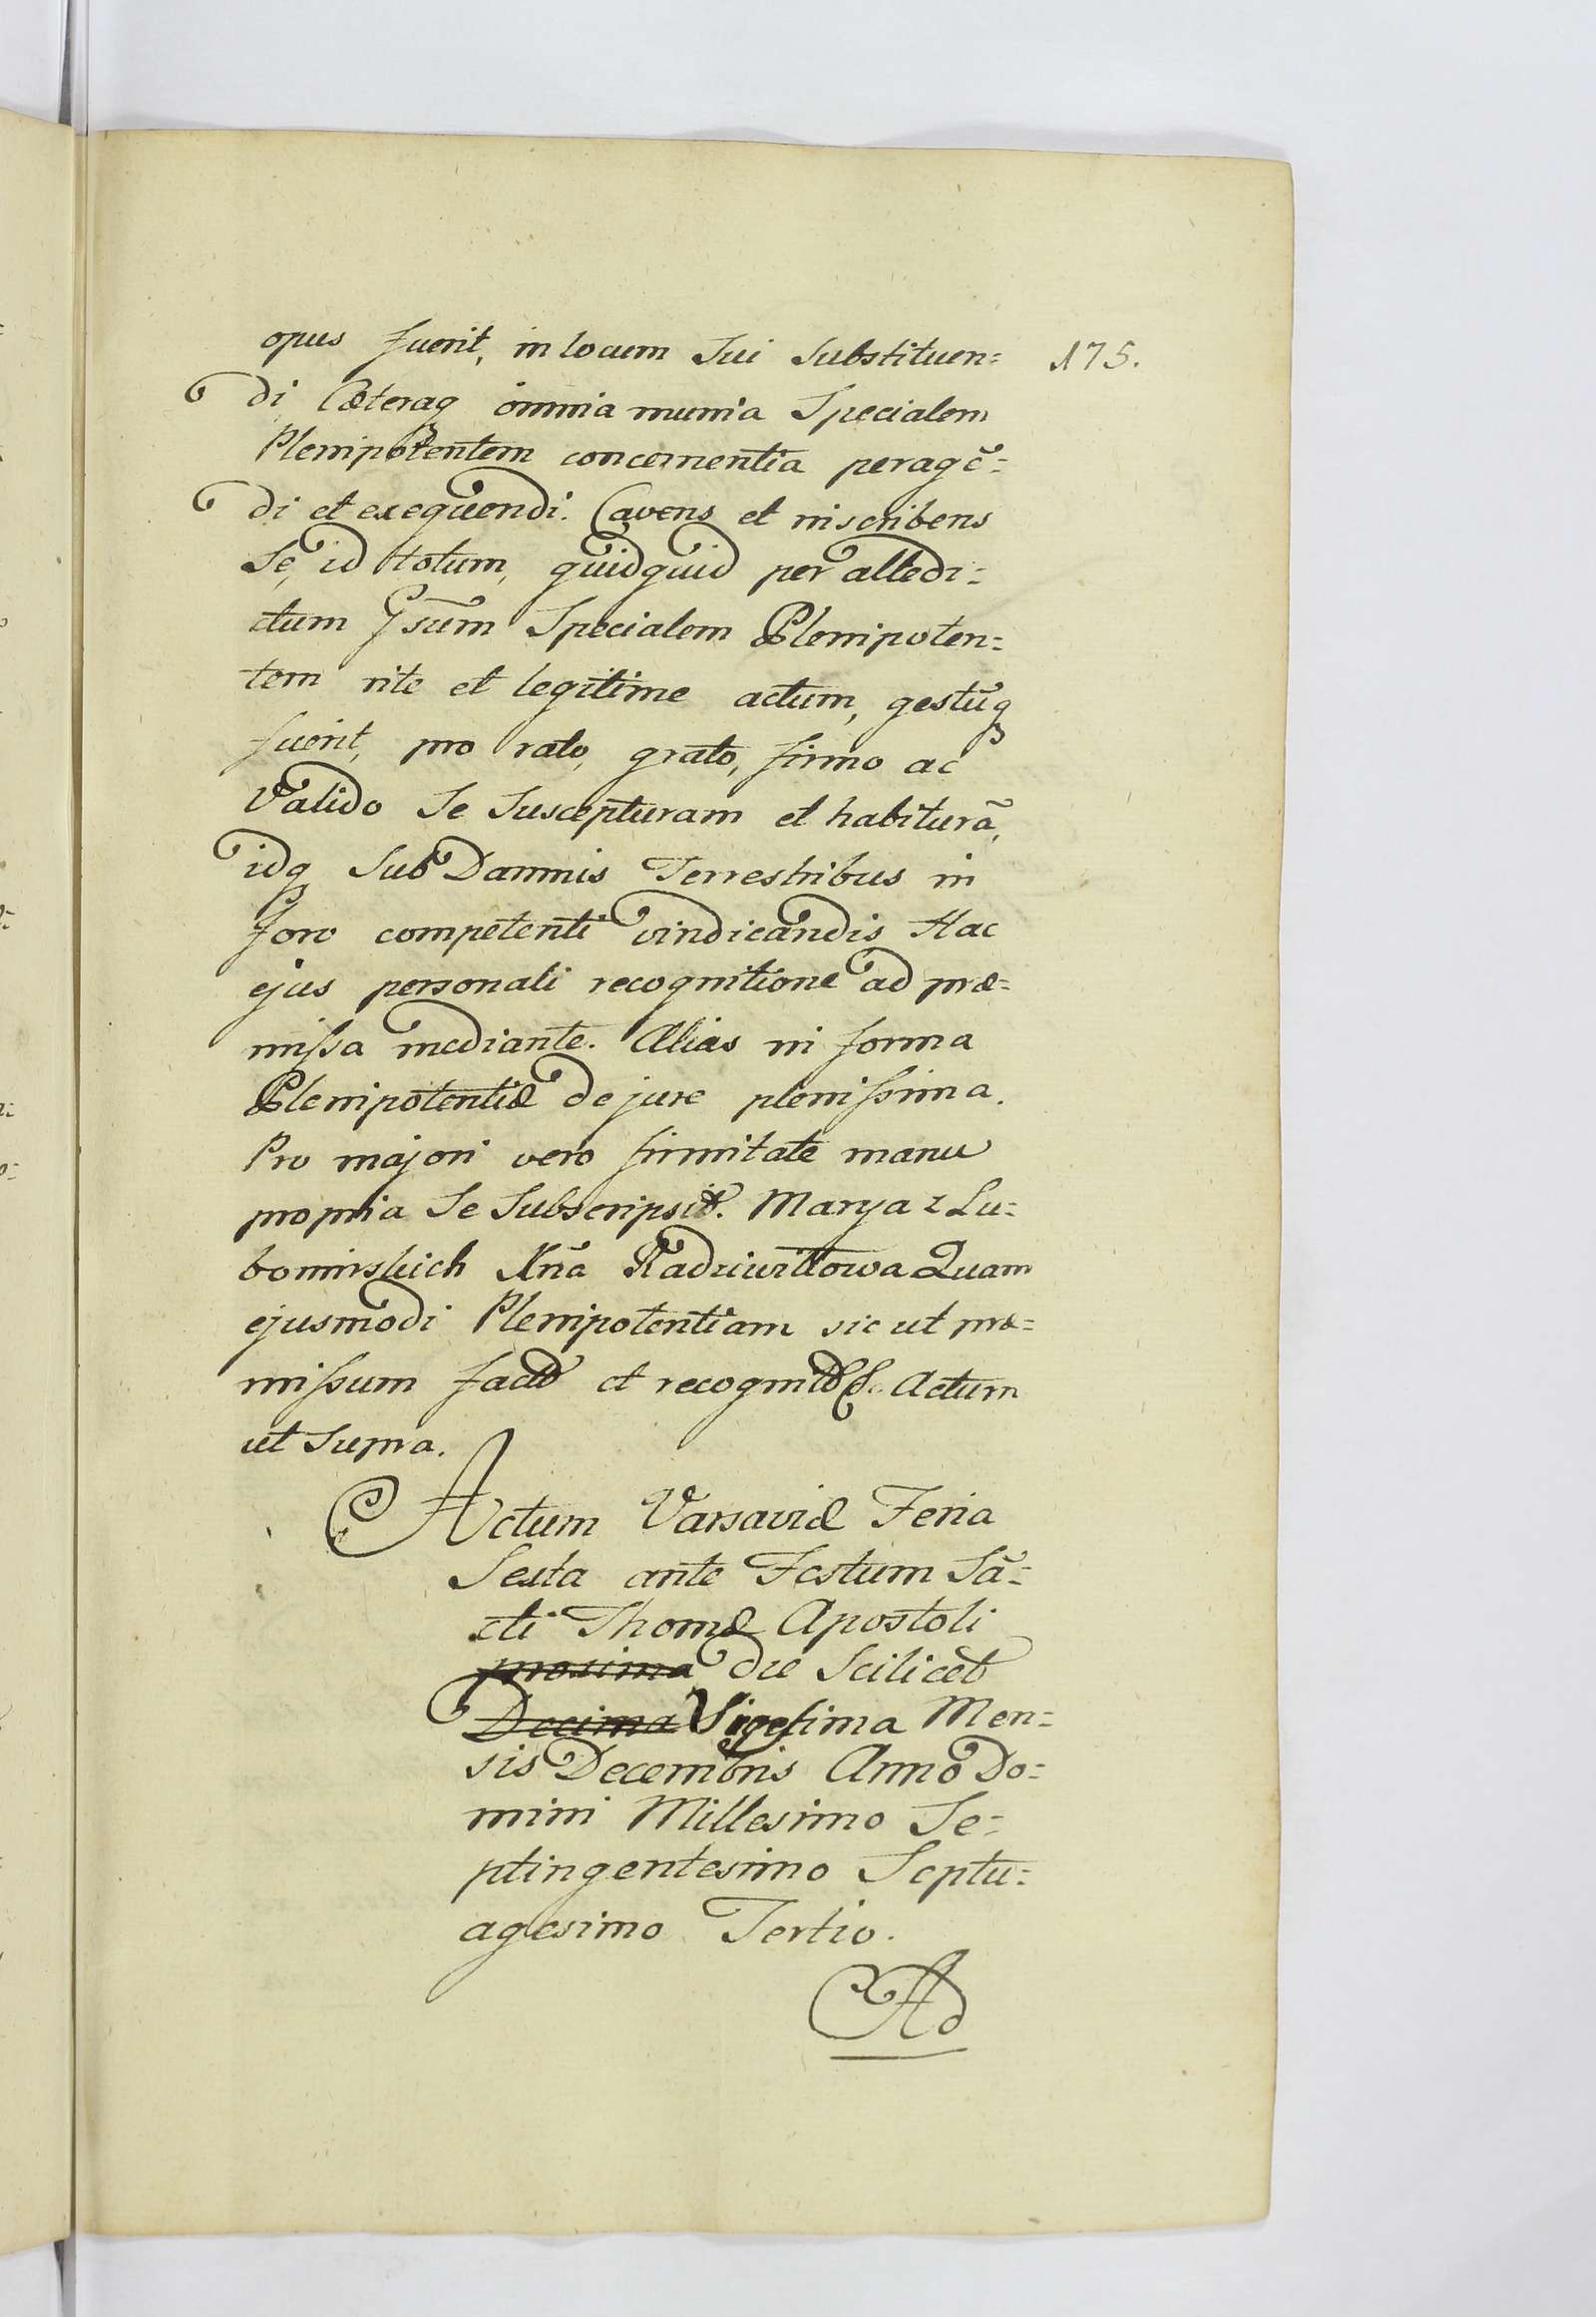 opus fuerit, in locum Sui Substituen=
175.
di Cæteraq omnia munia Specialem
Plenipotentem concernentia peragē=
di et exequendi. Cavens et inscribens
Se, id totum, quidquid per attedi=
ctum Ipsum Specialem Plenipoten=
tem rite et legitime actum, gestūq
fuerit, pro rato, grato, firmo ac
Valido Se Suscepturam et habiturā,
idq Sub Damnis Terrestribus in
foro competenti vindicandis Hac
ejus personali recognitione ad præ=
missa mediante. Alias in forma
Plenipotentiæ de jure plenissima.
Pro majori vero firmitate manu
propria Se Subscripsit. Marya z Lu=
bomirskich Xna Radziwiłłowa Quam
ejusmodi Plenipotentiam sic ut præ=
missum facto et recognito Actum
ut Supra.
Actum Varsaviæ Feria
Sexta ante Festum Sā=
cti Thomæ Apostoli
proxima die Scilicet
Decima Vigesima Men=
sis Decembris Anno Do=
mini Millesimo Se=
ptingentesimo Septu=
agesimo Tertio.
Ad